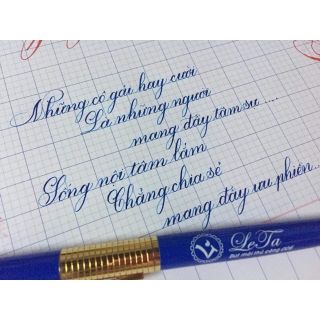 Những cô gái hay cười
Là những người
mang đầy tâm sự....
Sống nội tâm lắm
Chẳng chia sẻ
mang đầy ưu phiền...
LeTa